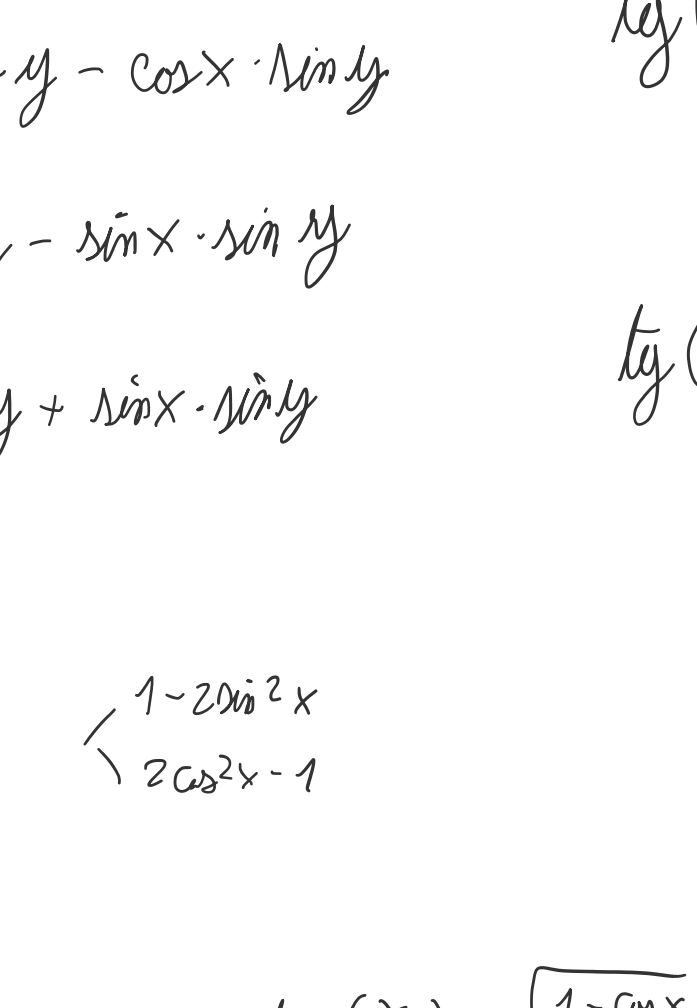 · y - cosx · sin y
tg
- sinx · sin y
y + sinx · sin y
tg (
1 - 2sin²x
2cos²x - 1
1 - cosx